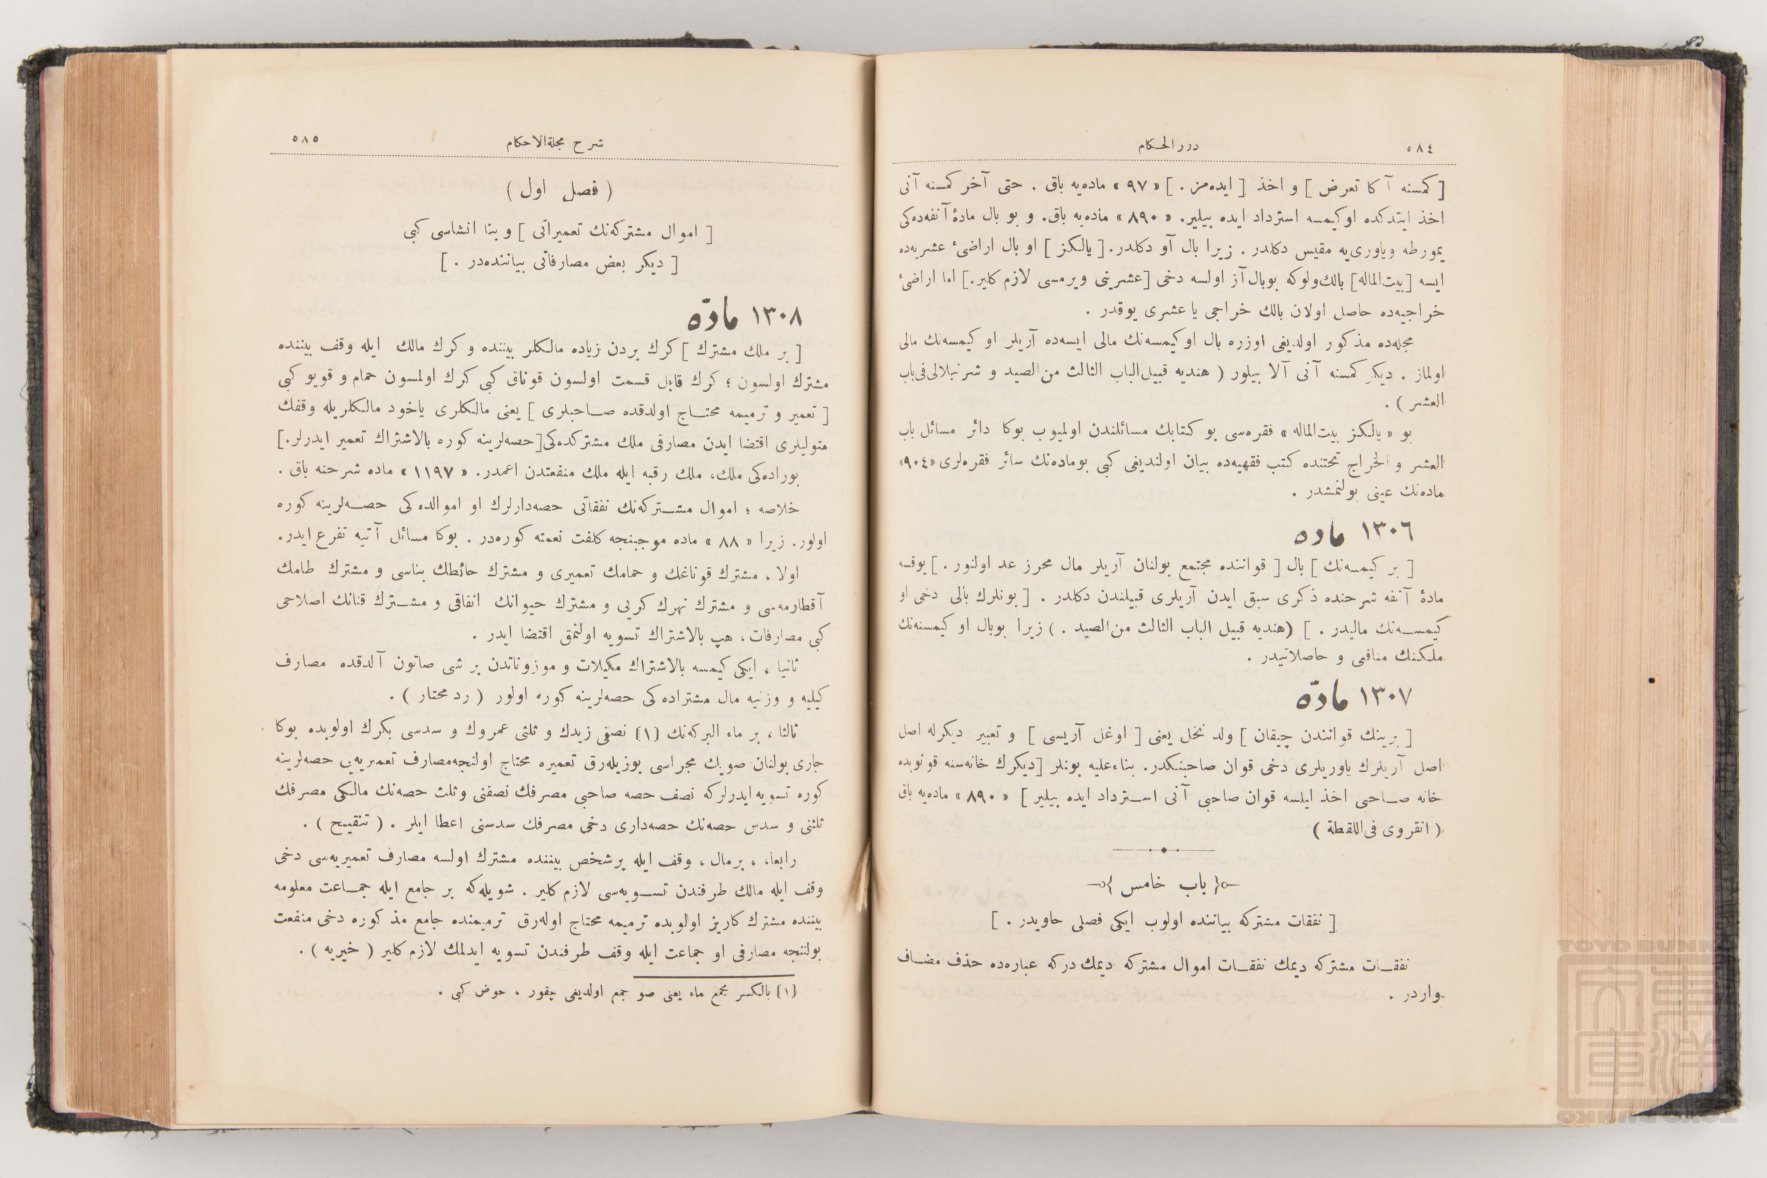 ٥٨٤
دررالحكام
[ كمسنه آ كا تعرض ] و اخذ [ ايده‌مز . ] « ٩٧ » ماده‌يه باق . حتى آخر كمسنه آنى
اخذ ايتدكده اوكيمسه استرداد ايده بيلير. « ٨٩٠ » ماده‌يه باق. و بو بال مادهٔ آنفه‌ده‌كى
يمورطه وياورى‌يه مقيس دكلدر . زيرا بال آو دكلدر. [ يالكز ] او بال اراضىٔ عشريه‌ده
ايسه [بيت‌الماله] بالك‌ولوكه بوبال‌آز اولسه دخى [عشرينى ويرمسى لازم كلير.] اما اراضىٔ
خراجيه‌ده حاصل اولان بالك خراجى يا عشرى يوقدر .
مجله‌ده مذكور اولديغى اوزره بال اوكيمسه‌نك مالى ايسه‌ده آريلر او كيمسه‌نك مالى
اولماز . ديكر كمسنه آنى آلا بيلور ( هنديه قبيل‌الباب الثالث من‌الصيد و شرنبلالى‌فى‌باب
العشر ) .
بو « يالكز بيت‌الماله » فقره‌سى بو كتابك مسائلندن اولميوب بوكا دائر مسائل باب
العشر و الخراج تحتنده كتب فقهيه‌ده بيان اولنديغى كبى بوماده‌نك سائر فقره‌لرى «٩٠٤»
ماده‌نك عينى بولنمشدر .
١٣٠٦ ماده
[ بر كيمسه‌نك ] بال [ قواننده مجتمع بولنان آريلر مال محرز عد اولنور . ] يوقسه
مادهٔ آنفه شرحنده ذكرى سبق ايدن آريلرى قبيلندن دكلدر . [ بونلرك بالى دخى او
كيمسه‌نك ماليدر . ] (هنديه قبيل الباب الثالث من‌الصيد . ) زيرا بوبال او كيمسنه‌نك
ملكنك منافى و حاصلاتيدر .
١٣٠٧ مادّه
[ برينك قوانندن چيقان ] ولد نحل يعنى [ اوغل آريسى ] و تعبير ديكرله اصل
اصل آريلرك ياوريلرى دخى قوان صاحبنكدر. بناءعليه بونلر [ديكرك خانه‌سنه قونوبده
خانه صاحبى اخذ ايلسه قوان صاحبى آنى استرداد ايده بيلير ] « ٨٩٠ » ماده‌يه باق
( انقروى فى‌اللقطة )
باب خامس
[ نفقات مشتركه بياننده اولوب ايكى فصلى حاويدر . ]
نفقات مشتركه ديمك نفقات اموال مشتركه ديمك دركه عباره‌ده حذف مضاف
واردر .
شرح مجلةالاحكام
٥٨٥
( فصل اول )
[ اموال مشتركه‌نك تعميراتى ] و بنا انشاسى كبى
[ ديكر بعض مصارفاتى بياننده‌در . ]
١٣٠٨ مادّه
[ بر ملك مشترك ] كرك بردن زياده مالكلر بيننده و كرك مالك ايله وقف بيننده
مشترك اولسون ؛ كرك قابل قسمت اولسون قوناق كبى كرك اولمسون حمام و قويو كبى
[ تعمير و ترميمه محتاج اولدقده صاحبلرى ] يعنى مالكلرى ياخود مالكلريله وقفك
متوليلرى اقتضا ايدن مصارفى ملك مشتركده‌كى[حصه‌لرينه كوره بالاشتراك تعمير ايدرلر.]
بوراده‌كى ملك، ملك رقبه ايله ملك منفعتدن اعمدر. « ١١٩٧ » ماده شرحنه باق .
خلاصه ؛ اموال مشتركه‌نك نفقاتى حصه‌دارلرك او اموالده‌كى حصه‌لرينه كوره
اولور. زيرا « ٨٨ » ماده موجبنجه كلفت نعمته كوره‌در . بوكا مسائل آتيه تفرع ايدر.
اولا ، مشترك قوناغك و حمامك تعميرى و مشترك حائطك بناسى و مشترك طامك
آقطارمه‌سى و مشترك نهرك كريى و مشترك حيوانك انفاقى و مشترك قناتك اصلاحى
كبى مصارفات ، هپ بالاشتراك تسويه اولنمق اقتضا ايدر .
ثانيا ، ايكى كيمسه بالاشتراك مكيلات و موزوناتدن بر شى صاتون آلدقده مصارف
كيليه و وزنيه مال مشتراده‌كى حصه‌لرينه كوره اولور ( رد محتار ) .
ثالثا ، بر ماء البركه‌نك [١] نصفى زيدك و ثلثى عمروك و سدسى بكرك اولوبده بوكا
جارى بولنان صويك مجراسى بوزيله‌رق تعميره محتاج اولنجه‌مصارف تعميريه‌يى حصه‌لرينه
كوره تسويه ايدرلركه نصف حصه صاحبى مصرفك نصفنى وثلث حصه‌نك مالكى مصرفك
ثلثنى و سدس حصه‌نك حصه‌دارى دخى مصرفك سدسنى اعطا ايلر . ( تنقيح ) .
رابعا، ، برمال ، وقف ايله برشخص بيننده مشترك اولسه مصارف تعميريه‌سى دخى
وقف ايله مالك طرفندن تسويه‌سى لازم كلير . شويله‌كه بر جامع ايله جماعت معلومه
بيننده مشترك كاريز اولوبده ترميمه محتاج اوله‌رق ترميمنده جامع مذ كوره دخى منفعت
بولنجه مصارفى او جماعت ايله وقف طرفندن تسويه ايدلمك لازم كلير ( خيريه ) .
[١] بالكسر مجمع ماء يعنى صو جمع اولديغى چقور ، حوض كبى .